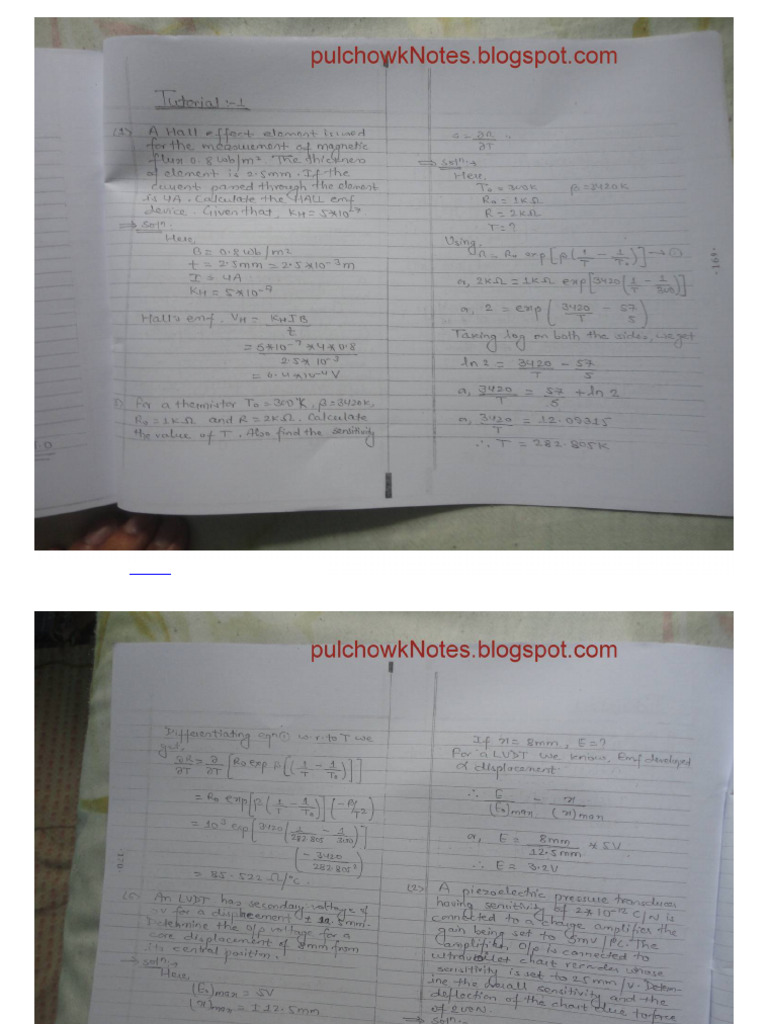 pulchowkNotes.blogspot.com
Tutorial :-1
(1) A Hall effect element is used
for the measurement of magnetic
flux 0.8 wb/m². The thickness
of element is 2.5mm. If the
current passed through the element
is 4A. Calculate the HALL emf
device. Given that, KH = 5*10⁻⁷
⇒ Soln:-
Here,
B = 0.8 wb/m²
t = 2.5mm = 2.5*10⁻³m
I = 4A
KH = 5*10⁻⁷
Hall's emf. VH = KHIB
t
= 5*10⁻⁷*4*0.8
2.5*10⁻³
= 6.4*10⁻⁴V
For a thermister T₀=300°K, β=3420K,
R₀=1KΩ and R=2KΩ. Calculate
the value of T. Also find the sensitivity
S = ∂R
∂T
⇒ Soln:-
Here,
T₀ = 300K β=3420K
R₀ = 1KΩ
R = 2KΩ
T = ?
Using,
R = R₀ exp[β(1/T - 1/T₀)] → ①
or, 2KΩ = 1KΩ exp[3420(1/T - 1/300)]
or, 2 = exp(3420/T - 57/5)
Taking log on both the sides, we get
ln2 = 3420/T - 57/5
or, 3420/T = 57/5 + ln2
or, 3420/T = 12.09315
∴ T = 282.805K
-169-
pulchowkNotes.blogspot.com
Differentiating eqn ① w.r.to T we
get,
∂R/∂T = ∂/∂T [R₀ exp β[(1/T - 1/T₀)]]
= R₀ exp[β(1/T - 1/T₀)] (-β/T²)
= 10³ exp[3420(1/282.805 - 1/300)]
(-3420/282.805²)
= 85.522 Ω/°C.
(5) An LVDT has secondary voltage of
5V for a displacement ± 12.5mm.
Determine the o/p voltage for a
core displacement of 8mm from
its central position.
⇒ Soln:-
Here,
(E₀)max = 5V
(x)max = 112.5mm
If x = 8mm, E = ?
For a LVDT we know, Emf developed
α displacement
∴ E/(E₀)max = x/(x)max
or, E = 8mm/12.5mm * 5V
∴ E = 3.2V
(2) A piezoelectric pressure transducer
having sensitivity of 2*10⁻¹² C/N is
connected to a charge amplifier the
gain being set to 5mV/PC. The
amplifier o/p is connected to
ultraviolet chart recorder whose
sensitivity is set to 25mm/V. Determ-
ine the overall sensitivity and the
deflection of the chart due to force
of
⇒ Soln:-